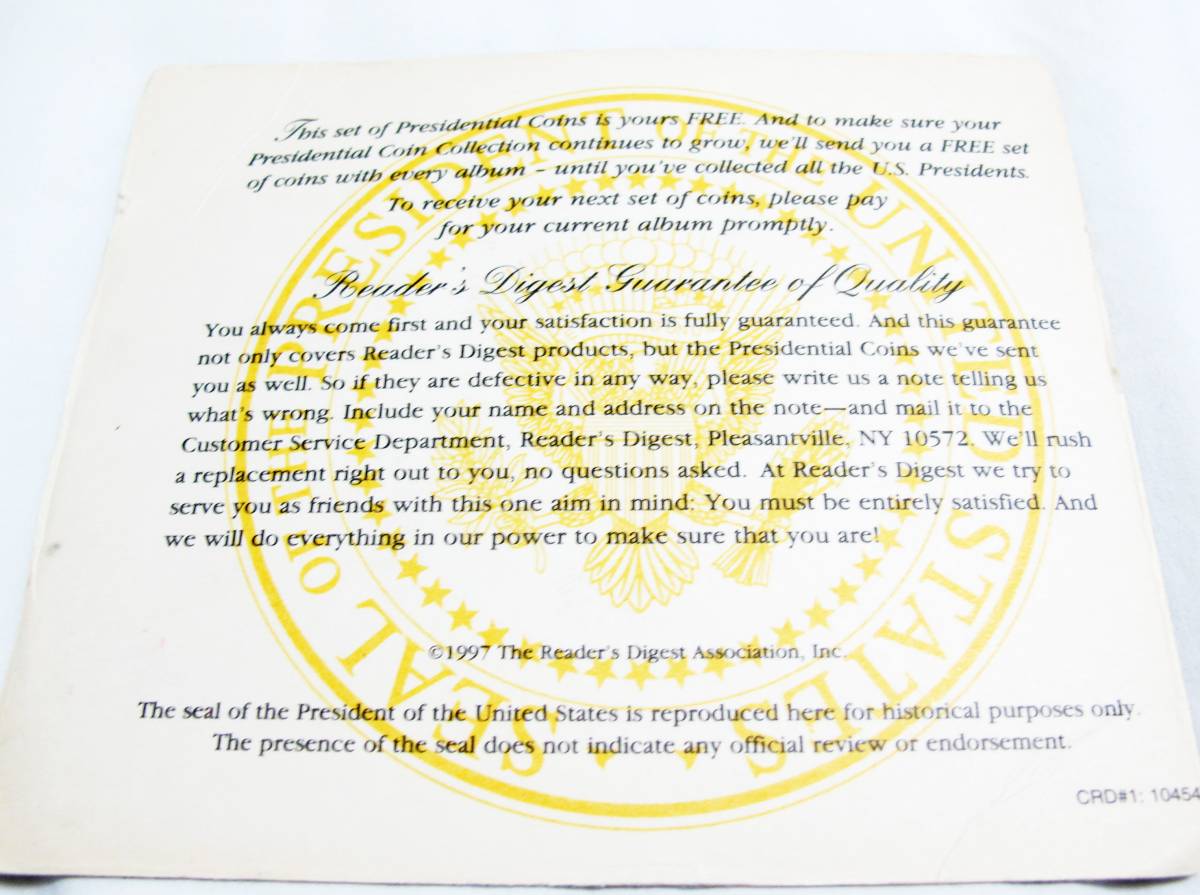 This set of Presidential Coins is yours FREE. And to make sure your
Presidential Coin Collection continues to grow, we'll send you a FREE set
of coins with every album – until you've collected all the U.S. Presidents.
To receive your next set of coins, please pay
for your current album promptly.
Reader's Digest Guarantee of Quality
You always come first and your satisfaction is fully guaranteed. And this guarantee
not only covers Reader's Digest products, but the Presidential Coins we've sent
you as well. So if they are defective in any way, please write us a note telling us
what's wrong. Include your name and address on the note—and mail it to the
Customer Service Department, Reader's Digest, Pleasantville, NY 10572. We'll rush
a replacement right out to you, no questions asked. At Reader's Digest we try to
serve you as friends with this one aim in mind: You must be entirely satisfied. And
we will do everything in our power to make sure that you are!
©1997 The Reader's Digest Association, Inc.
The seal of the President of the United States is reproduced here for historical purposes only.
The presence of the seal does not indicate any official review or endorsement.
CRD#1: 10454
SEAL OF THE PRESIDENT OF THE UNITED STATES